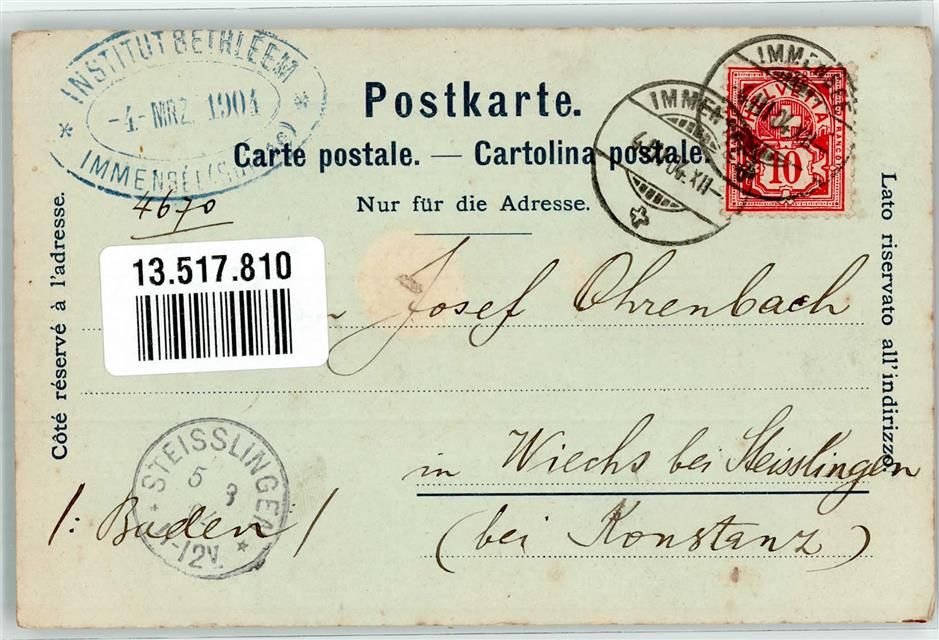 INSTITUT BETHLEEM
-4.- MRZ. 1904
IMMENSEE (Schwyz)
Postkarte.
Carte postale. — Cartolina postale.
Nur für die Adresse.
Côté réservé à l'adresse.
Lato riservato all'indirizzo.
IMMENSEE
4. III. 04. XII
IMMENSEE
HELVETIA
FRANCO
10
4670
13.517.810
Josef Ohrenbach
in Wiechs bei Steisslingen
/: Baden /
(bei Konstanz)
STEISSLINGEN
5 3
-12V.